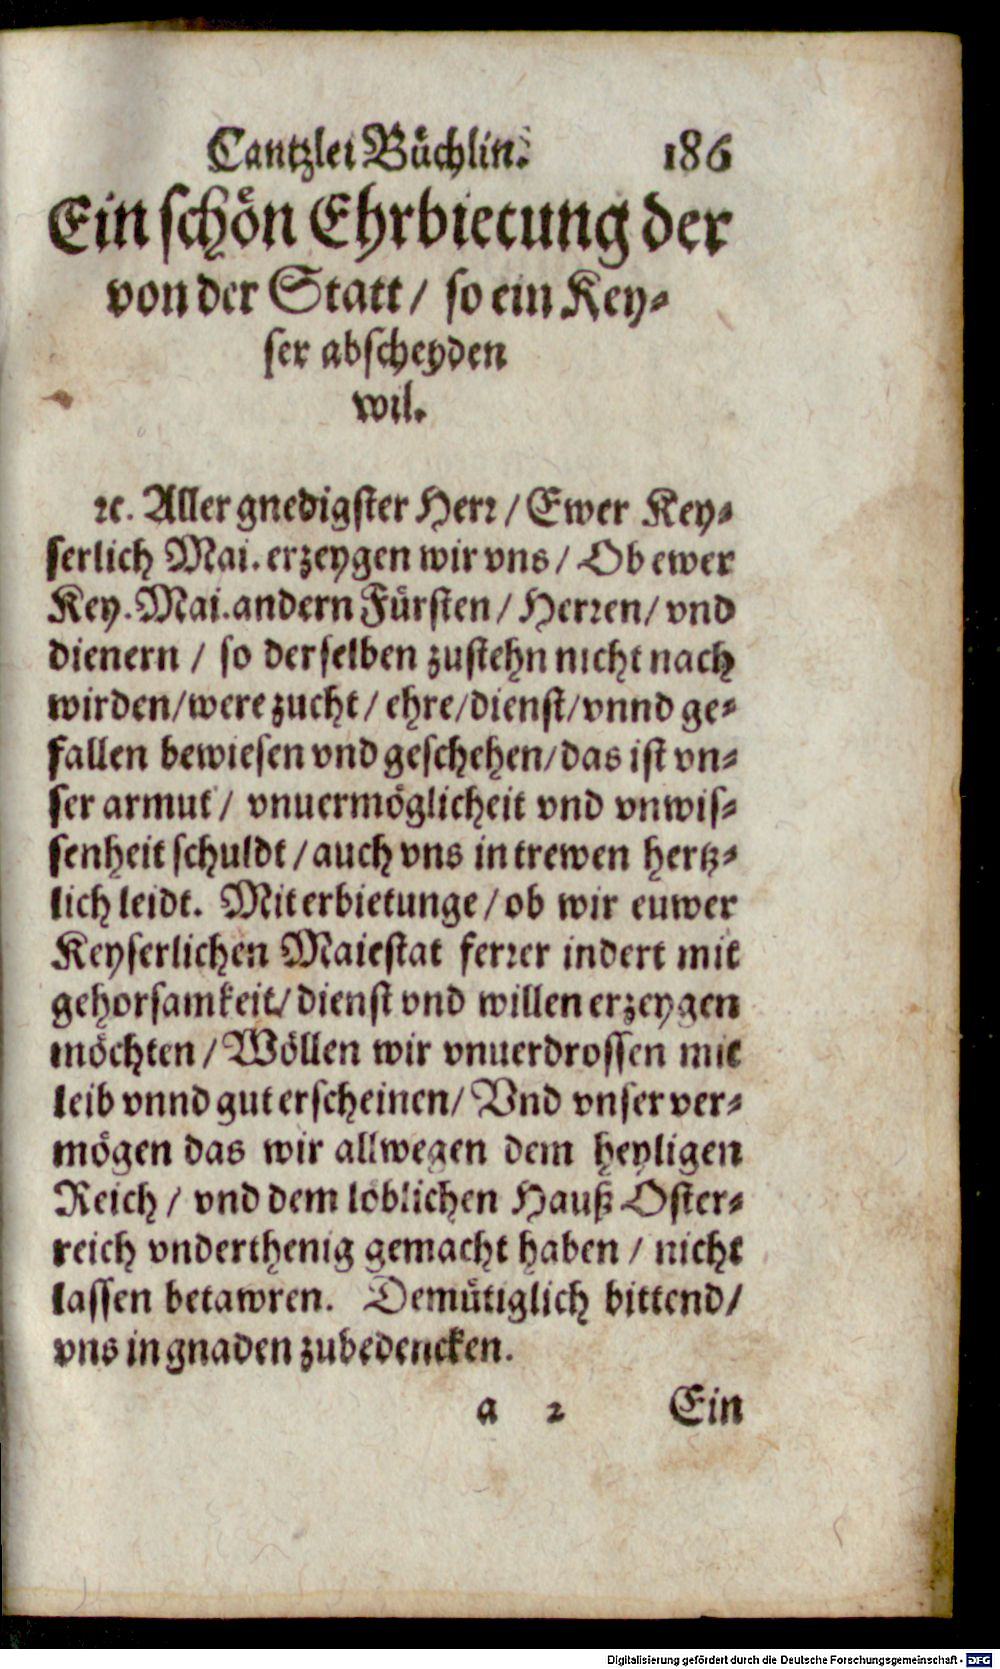 Cantzlei Bůchlin. 186
Ein schoͤn Ehrbietung der
von der Statt / so ein Key⸗
ser abscheyden
wil.
ꝛc. Aller gnedigster Herꝛ / Ewer Key⸗
serlich Mai. erzeygen wir vns / Ob ewer
Key. Mai. andern Fürsten / Herꝛen / vnd
dienern / so derselben zustehn nicht nach
wirden / were zucht / ehre / dienst / vnnd ge⸗
fallen bewiesen vnd geschehen / das ist vn⸗
ser armut / vnuermöglicheit vnd vnwis⸗
senheit schuldt / auch vns in trewen hertz⸗
lich leidt. Mit erbietunge / ob wir euwer
Keyserlichen Maiestat ferꝛer indert mit
gehorsamkeit / dienst vnd willen erzeygen
möchten / Wöllen wir vnuerdrossen mit
leib vnnd gut erscheinen / Vnd vnser ver⸗
mögen das wir allwegen dem heyligen
Reich / vnd dem löblichen Hauß Oster⸗
reich vnderthenig gemacht haben / nicht
lassen betawren. Demütiglich bittend /
vns in gnaden zubedencken.
a 2 Ein
Digitalisierung gefördert durch die Deutsche Forschungsgemeinschaft - DFG